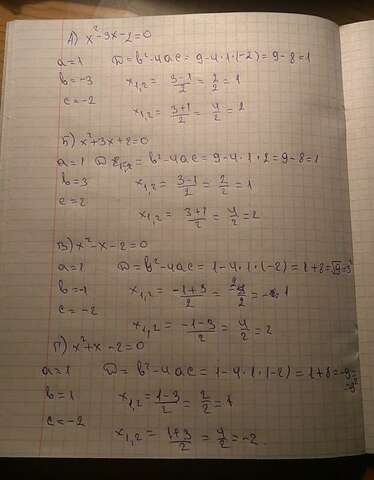 А) x²-3x-2=0
a=1 D=b²-4ac=9-4·1·(-2)=9-8=1
b=-3 x₁,₂= 3-1/2 = 2/2 = 1
c=-2 x₁,₂= 3+1/2 = 4/2 = 2
Б) x²+3x+2=0
a=1 D = b²-4ac=9-4·1·2=9-8=1
b=3 x₁,₂= 3-1/2 = 2/2 = 1
c=2 x₁,₂= 3+1/2 = 4/2 = 2
В) x²-x-2=0
a=1 D=b²-4ac=1-4·1·(-2)=1+8=√9=3²
b=-1 x₁,₂= -1+3/2 = 2/2 = 1
c=-2 x₁,₂= -1-3/2 = 4/2 = 2
Г) x²+x-2=0
a=1 D=b²-4ac=1-4·1·(-2)=1+8=-9=
b=1 x₁,₂= 1-3/2 = 2/2 = 1
c=-2 x₁,₂= 1+3/2 = 4/2 = -2